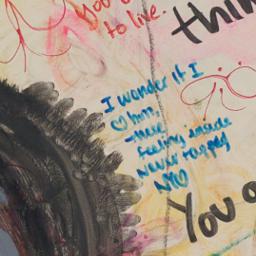 to live.
thin
I wonder if I
♡ him,
these
feeling inside
Never tapped
You a